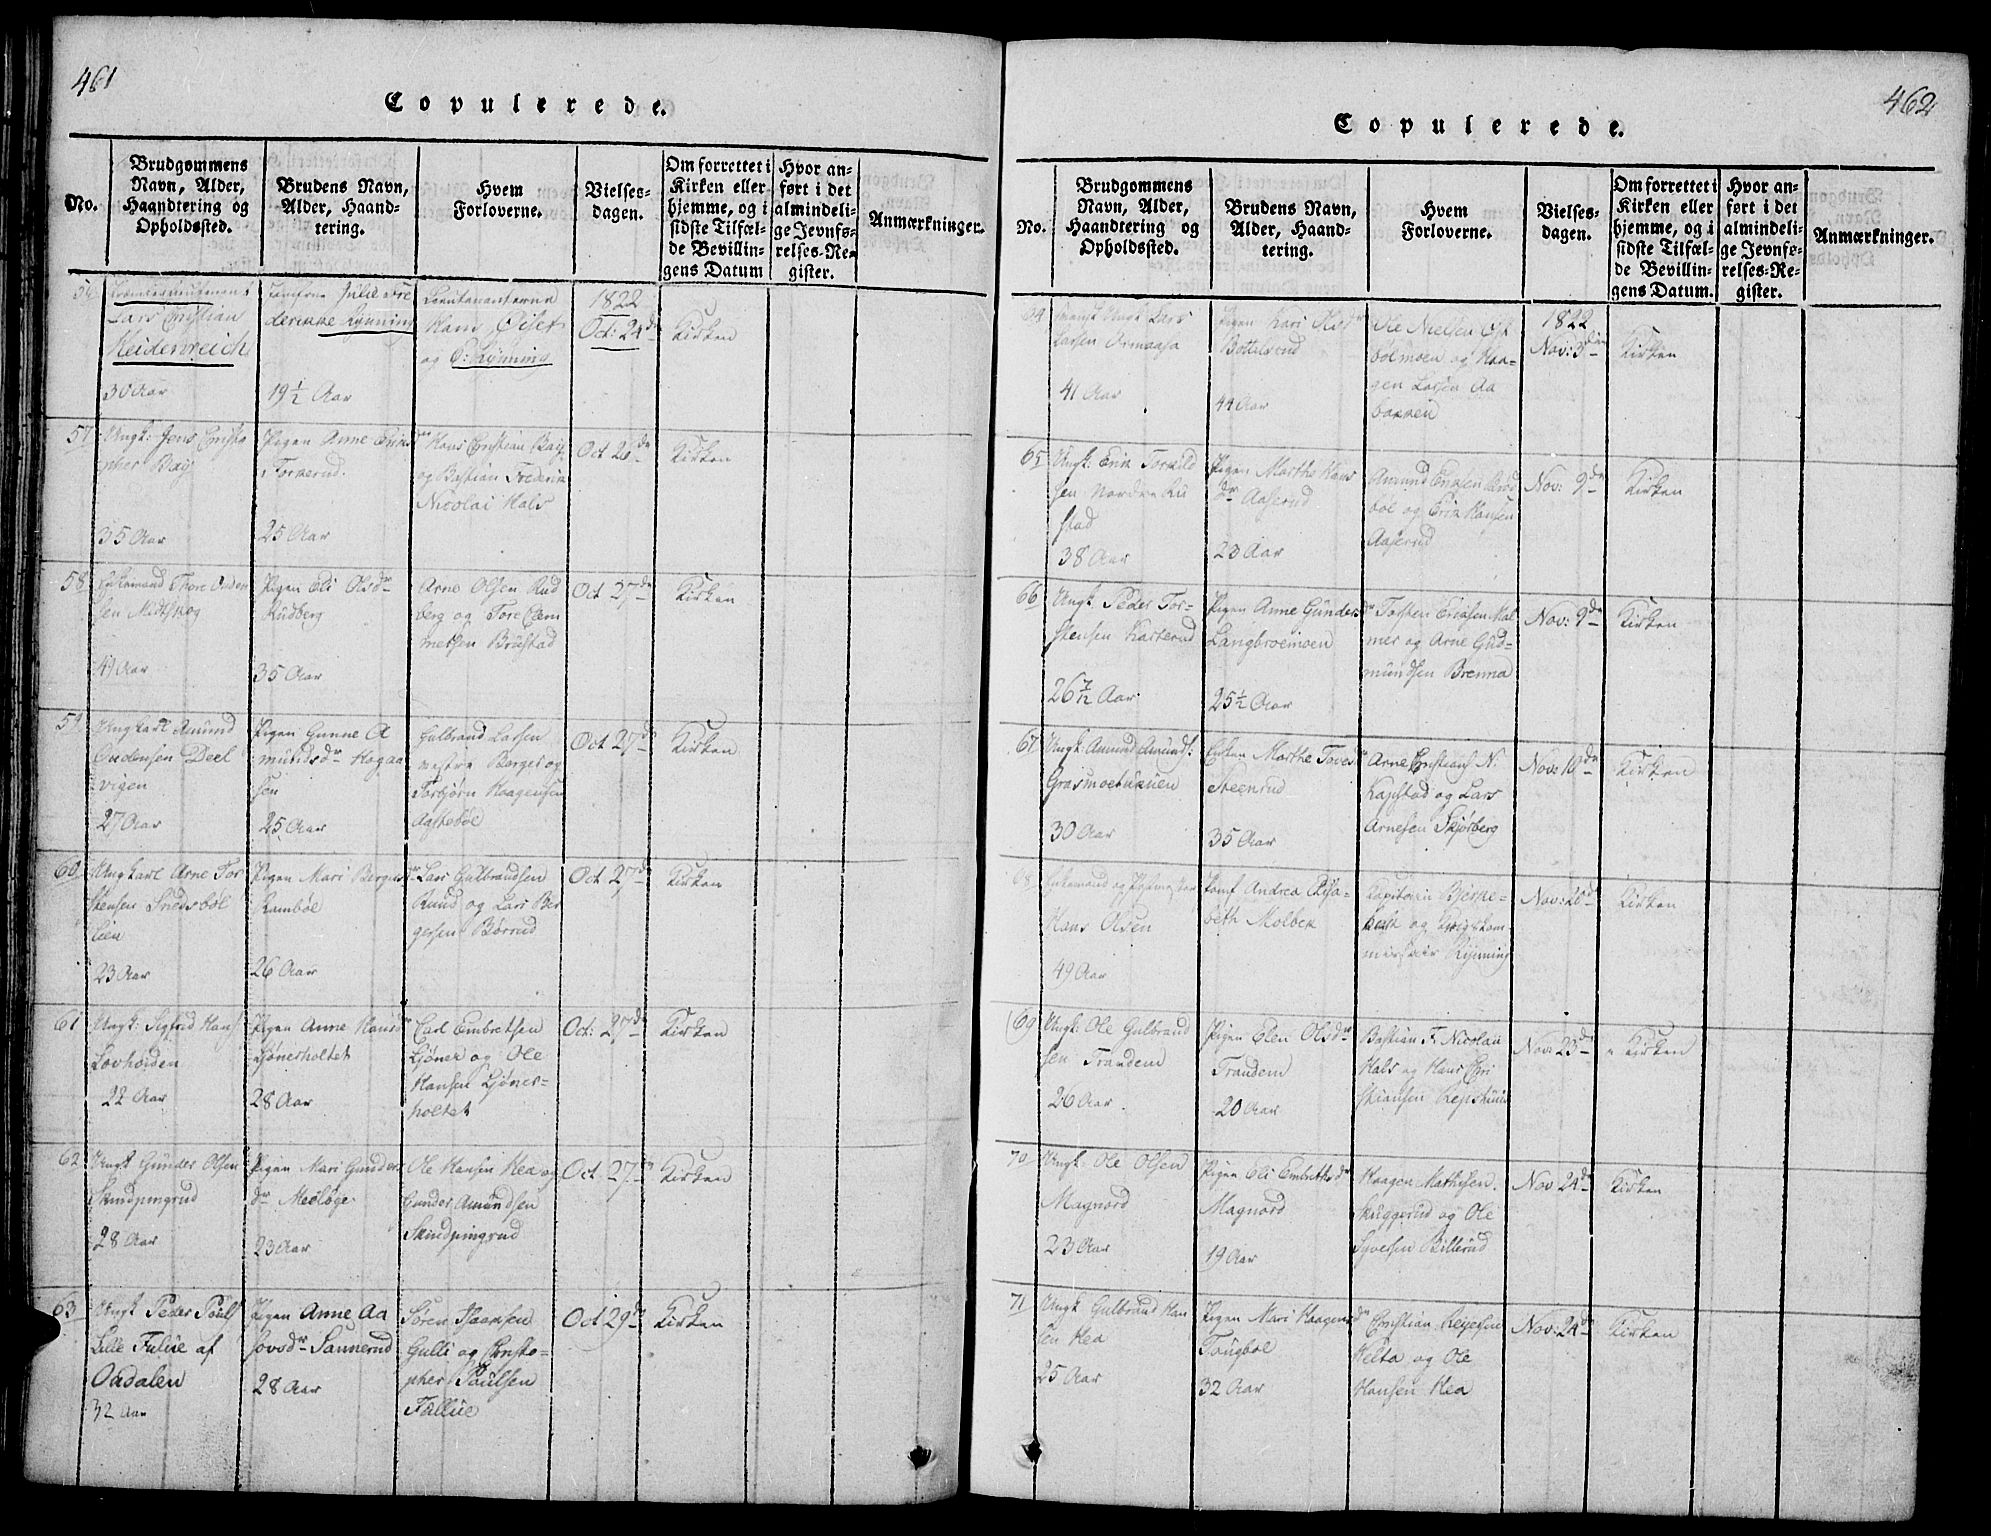 461
Copulerede.
No.
Brudgommens
Navn, Alder,
Haandtering og
Opholdssted.
Brudens Navn,
Alder, Haand-
tering.
Hvem
Forloverne.
Vielses-
dagen.
Om forrettet i
Kirken eller
hjemme, og i
sidste Tilfæl-
de Bevillin-
gens Datum
Hvor an-
ført i det
almindeli-
ge Jevnfø-
relses-Re-
gister.
Anmærkninger.
Lars Christian
Heidenreich
30 Aar
Julie Fre
derikke Rynning
19½ Aar
Hans Øiset
og Rynning
1822
Oct: 24de
Kirken
57
Ungk: Jens Christo
pher Baÿ
35 Aar
Pigen Anne Eriksdr
Torkerud
25 Aar
Hans Christian Baÿ
og Bastian Frederik
Nicolai Hals
Oct 26de
Kirken
58
Enkemand Thore
sen Midtskog
49 Aar
Pigen Eli Olsdr
Rudberg
35 Aar
Arne Olsen Rud
berg og Tore Clem
metsen Brustad
Oct 27de
Kirken
59
Ungkarl Amund
Oudensen Deel
vigen
27 Aar
Pigen Gunne A
mundsdr Hogaa
sen
25 Aar
Gulbrand Larsen
Berger og
Torbjørn Haagensen
Aastebøl
Oct 27de
Kirken
60
Ungkarl Arne Tor
stensen Snedsbøl
lien
23 Aar
Pigen Mari Bergersdr
Rambøl
26 Aar
Lars Gulbrandsen
Ruud og Lars Ber
gersen Børrud
Oct 27de
Kirken
61
Ungk: Sigfrid Hans
Lovhoiden
22 Aar
Pigen Anne Hansdr
Ljønerholtet
28 Aar
Carl Embretsen
Ljøner og Ole
Hansen Ljøner=
holtet
Oct: 27de
Kirken
62
Ungk Gunder Olsen
Skindpingrud
28 Aar
Pigen Mari Gunders
dr Melløge
23 Aar
Ole Hansen Hea og
Gunder Amundsen
Skindpingrud
Oct 27de
Kirken
63
Ungk Peder Pouls
Lille Fulue af
Oudalen
32 Aar
Pigen Anne Aa
sovsdr Sannerud
28 Aar
Søren Isaaksen
Gulli og Christo=
pher Poulsen
Fullue
Oct 29de
Kirken
462
Copulerede.
No.
Brudgommens
Navn, Alder,
Haandtering og
Opholdssted.
Brudens Navn,
Alder, Haand-
tering.
Hvem
Forloverne.
Vielses-
dagen.
Om forrettet i
Kirken eller
hjemme, og i
sidste Tilfæl-
de Bevillin-
gens Datum.
Hvor an-
ført i det
almindeli-
ge Jevnfø-
relses-Re-
gister.
Anmærkninger.
64
Lars
Larsen Ormaasa
41 Aar
Pigen Kari Olsdr
Bottilsrud
44 Aar
Ole Nielsen
bølmoen og Haa-
gen Larsen Aa
bakken
1822
Nov: 3die
Kirken
65
Ungk: Erik Torkild
sen Nordre Ru
stad
38 Aar
Pigen Marthe Hans
dr Aaserud
23 Aar
Amund Eriksen
bøl og Erik Hansen
Aaserud
Nov: 9de
Kirken
66
Ungk. Peder Tor-
stensen Karterud
26 7/12 Aar
Pigen Anne Gundersdr
Langbroemoen
25½ Aar
Torsten Eriksen Mal
mer og Arne Gud=
mundsen Brenna
Nov: 9de
Kirken
67
Ungk: Amund Amunds:
Grasmoetukuen
30 Aar
Enken Marthe Toresdr
Steenrud
35 Aar
Arne Christians N:
Kapstad og Lars
Arnesen Skjørberg
Nov: 10de
Kirken
68
Enkemand og Postmester
Hans Olsen
49 Aar
Jomf Andrea Elisa-
beth Molbek
Capitain Bjerke-
og Krigskom-
missair Rynning
Nov: 20de
Kirken
69
Ungk: Ole Gulbrand
sen Trandem
26 Aar
Pigen Elen Olsdr
Trandem
20 Aar
Bastian F. Nicolai
Hals og Hans Chri
stiansen
Nov: 23de
Kirken
70
Ungk: Ole Olsen
Magnord
23 Aar
Pigen Eli Embrethsdr
Magnord
19 Aar
Haagen Mathisen
Skuggerud og Ole
Syversen Billerud
Nov 24de
Kirken
71
Ungk Gulbrand Han
sen Hea
25 Aar
Pigen Mari Haagensdr
Tougbøl
32 Aar
Christian
Velta og Ole
Hansen Hea
Nov: 24de
Kirken